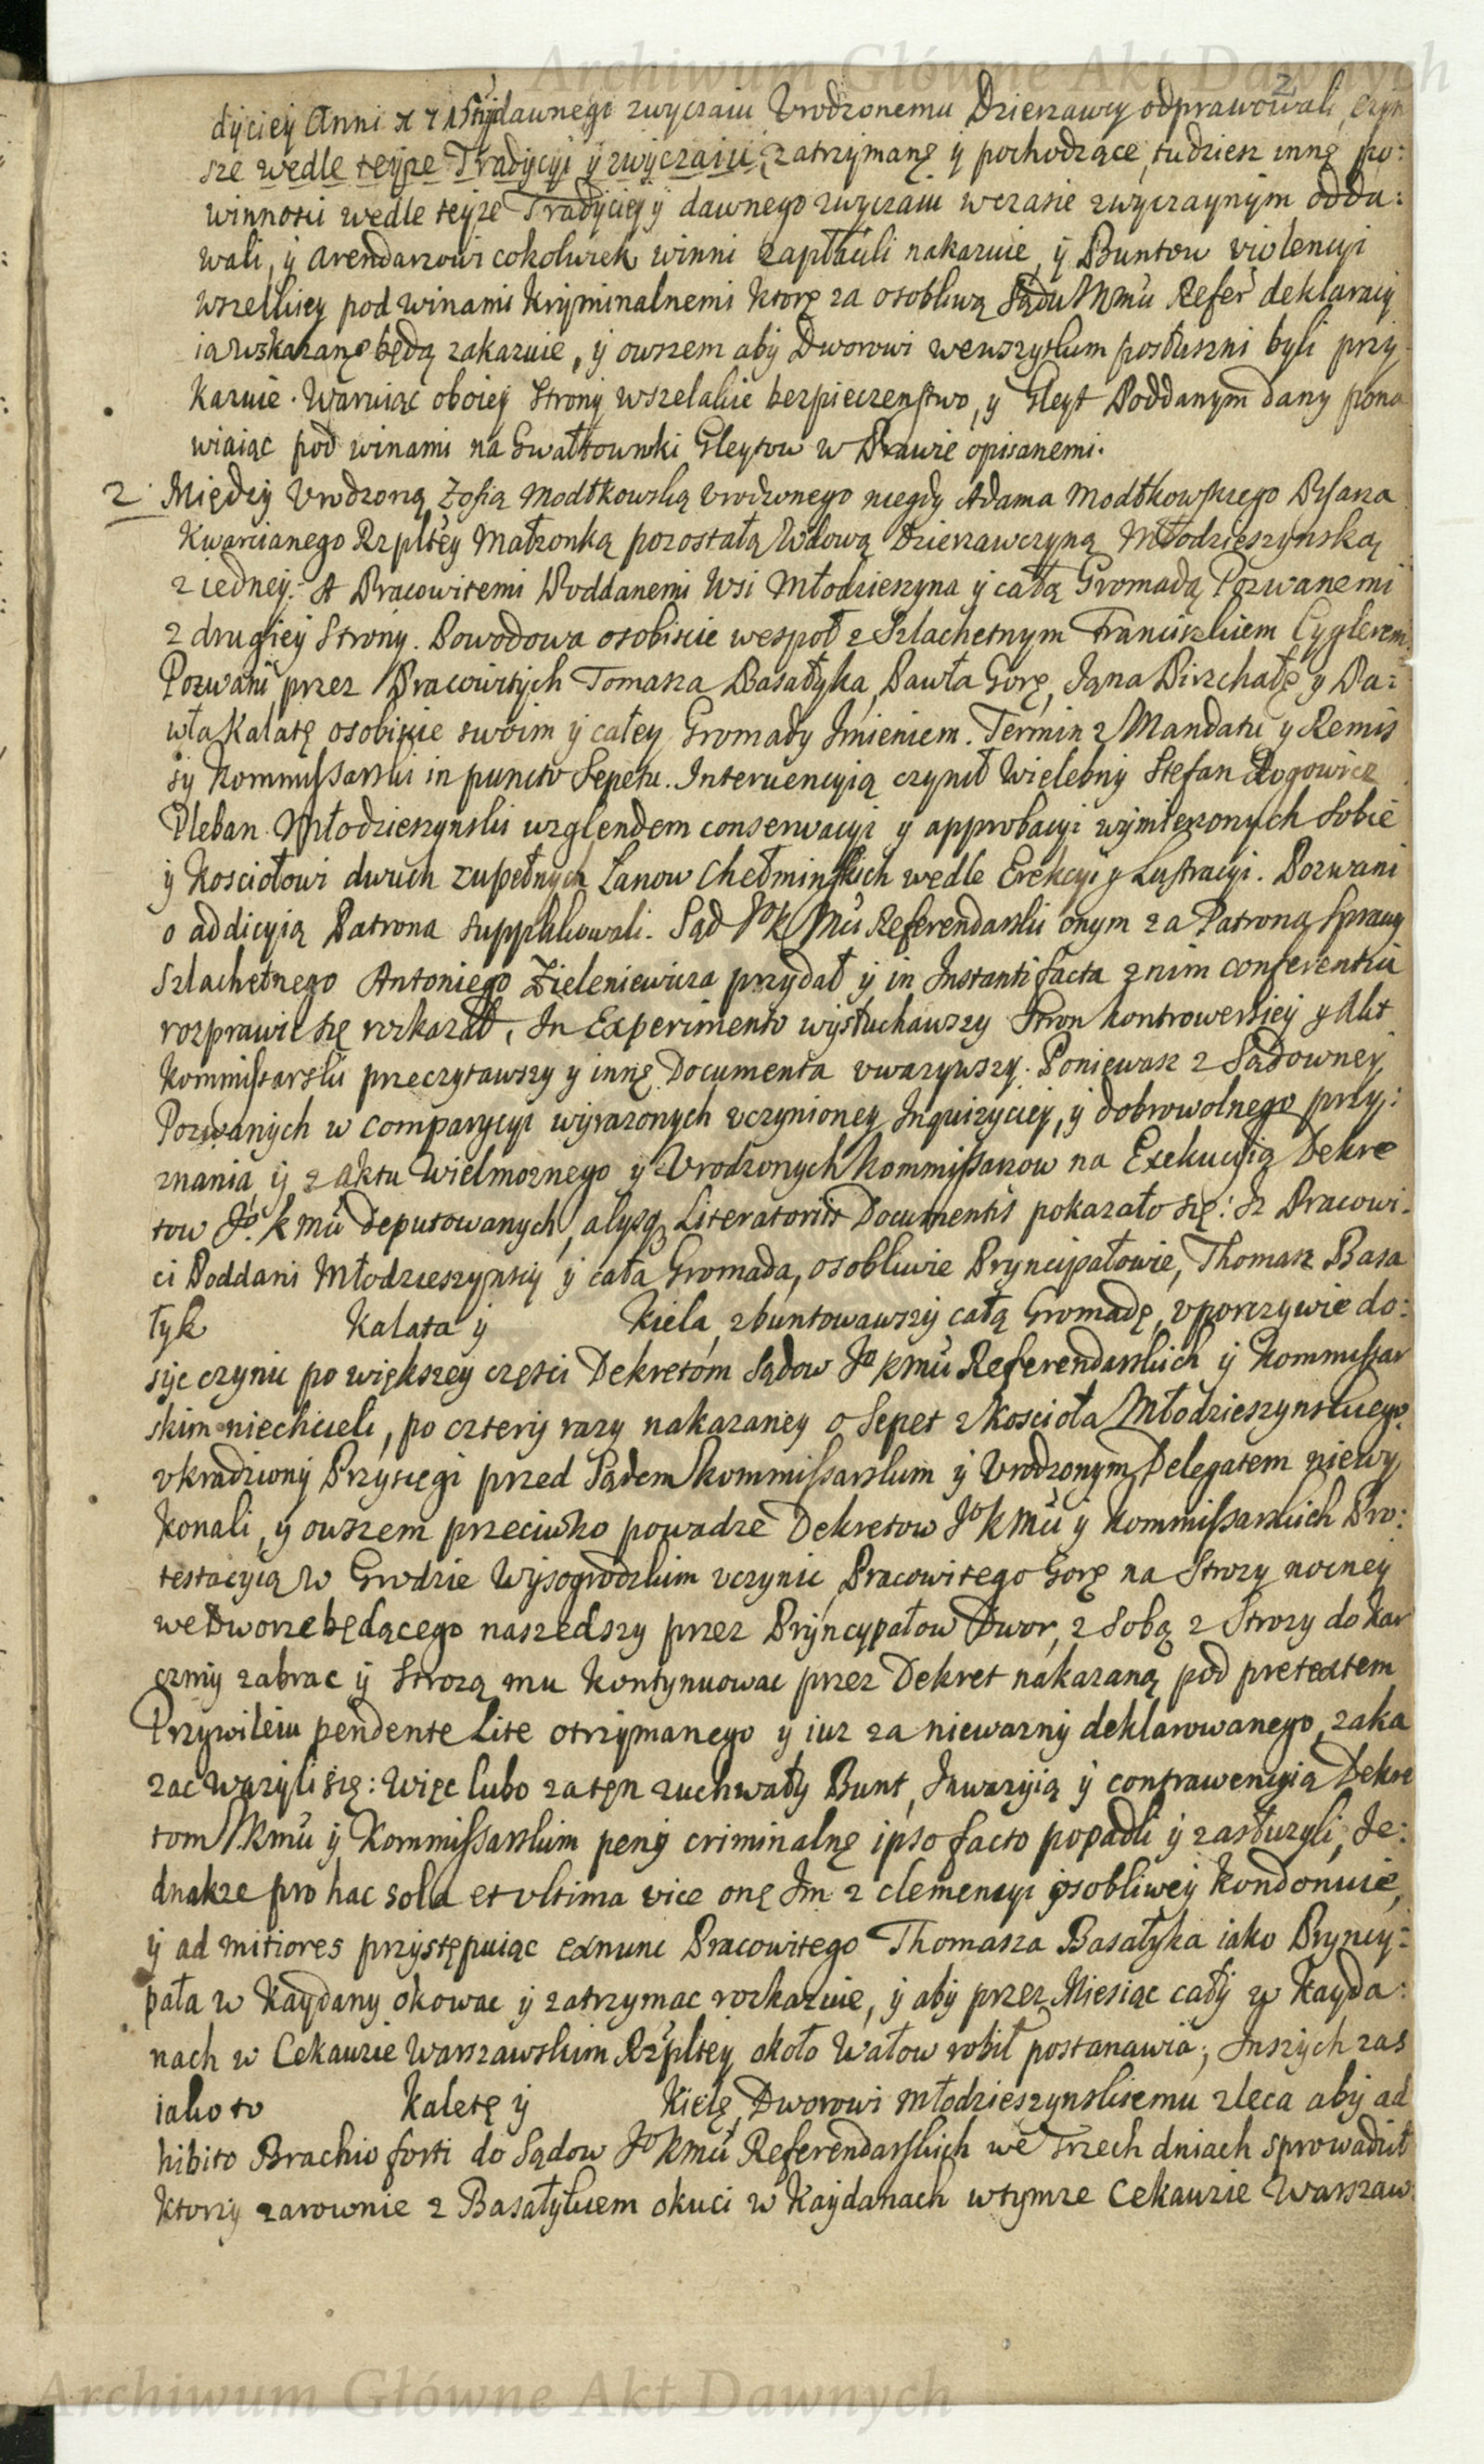 Archiwum Główne Akt Dawnych
2
dyciey Anni dawnego zwyczaiu Vrodzonemu Dzierzawcy odprawowali, czyn
sze wedle teyze Tradycyi y zwyczaiu zatrzymanę y pochodzące, tudziesz innę po:
winnosci wedle teyze Tradyciey y dawnego zwyczaiu wczasie zwyczaynym odda:
wali, y Arendarzowi cokolwiek winni zapłacili nakazuie, y Buntow violencyi
wszelkiey pod winami Kryminalnemi Ktorę za osobliwą Sądu Kmci Refer deklaracy
ia wskazanę będą zakazuie, y owszem aby Dworowi wewszytkim posłuszni byli przy
kazuie. Waruiąc oboiey Strony wszelakie bezpieczenstwo, y Gleyt Poddanym dany pona
wiaiąc pod winami na Gwałtowniki Gleytow w Prawie opisanemi.
2. Między Vrodzoną Zofią Modłkowską Vrodzonego niegdy Adama Modłkowskiego Pisarza
Kwarcianego Rzpltey Małzonką pozostałą Wdową Dzierzawczyną Młodzieszynską
z iedney: A Pracowitemi Poddanemi Wsi Młodzieszyna y całą Gromadą Pozwanemi
z drugiey Strony. Powodowa osobiscie wespoł z Szlachetnym Franciszkiem Cyglerem.
Pozwani przez Pracowitych Tomasza Basałyka, Pawła Gorę, Jana Pirzchałę y Pa:
wła Kalatę osobiscie swoim y całey Gromady Imieniem. Termin z Mandatu y Remis
sy Kommissarski in puncto Sepetu. Interuencyią czynił Wielebny Stefan Rogowicz
Pleban Młodzieszynski wzglendem conserwacyi y approbacyi wymierzonych Sobie
y Kosciołowi dwuch zupełnych Łanow Chełminskich wedle Erekcyi y Lustracyi. Pozwani
o addicyią Patrona supplikowali. Sąd Jo K Mci Referendarski onym za Patrona Sprawy
Szlachetnego Antoniego Zieleniewicza przydał y in Instanti facta z nim conferentia
rozprawic się rozkazał, In Experimento wysłuchawszy Stron kontrowersiey y Akt
Kommissarski przeczytawszy y innę Documenta vwazywszy. Poniewasz z Sądowney
Pozwanych w comparycyi wyrazonych vczynioney Inquizyciey, y dobrowolnego przy:
znania y z aktu Wielmoznego y Vrodzonych Kommissarzow na Exekucyią Dekre
tow Jo. K mci deputowanych, alysq Literatoriis Documentis pokazało się: Iz Pracowi.
ci Poddani Młodzieszynscy y cała Gromada, osobliwie Pryncipałowie, Thomasz Basa
łyk Kalata y Kiela, zbuntowawszy całą Gromadę, vporczywie do:
syc czynic po większey części Dekretom Sądow Jo K mci Referendarskich y Kommissar
skim niechcieli, po cztery razy nakazaney o Sepet z Koscioła Młodzieszynskiego
vkradziony Przysięgi przed Sądem Kommissarskim y Vrodzonym Delegatem niewy
konali, y owszem przeciwko powadze Dekretow Jo K mci y Kommissarskich Pro:
testacyią w Grodzie Wysogrodzkim vczynic, Pracowitego Gorę na Strozy nocney
we Dworze będącego naszedszy przez Pryncypałow Dwor, z Sobą z Strozy do Kar
czmy zabrac y Strozą mu kontynuowac przez Dekret nakazaną pod pretextem
Przywileiu pendente Lite otrzymanego y iuz za niewazny deklarowanego, zaka
zac wazyli się: Więc lubo za tęn zuchwały Bunt, Inwazyią y contrawencyią Dekre
tom J. Kmci y Kommissarskim peny criminalnę ipso facto popadli y zasłuzyli, Je:
dnakze pro hac sola et vltima vice onę Im z clemencyi osobliwey kondonuie,
y ad mitiores przystępuiąc exnunc Pracowitego Thomasza Basałyka iako Pryncy:
pała w Kaydany okowac y zatrzymac rozkazuie, y aby przez Miesiąc cały w Kayda:
nach w Cekauzie Warszawskim Rzpltey około Wałow robił postanawia; Inszych zas
iako to Kaletę y Kielę, Dworowi Młodzieszynskiemu zleca aby ad
hibito Brachio forti do Sądow Jo K mci Referendarskich we Trzech dniach sprowadził
Ktorzy zarownie z Basałykiem okuci w Kaydanach wtymze Cekauzie Warszaw
Archiwum Główne Akt Dawnych